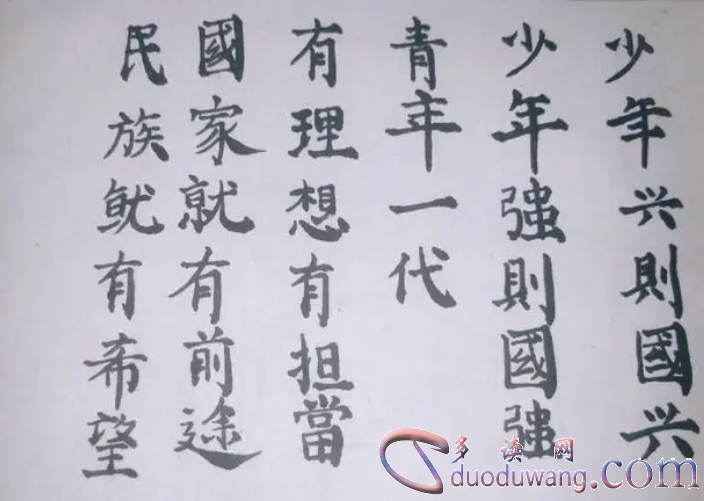 少年兴則國兴
少年強則國強
青年一代
有理想有担當
國家就有前途
民族就有希望
多读网
duoduwang.com